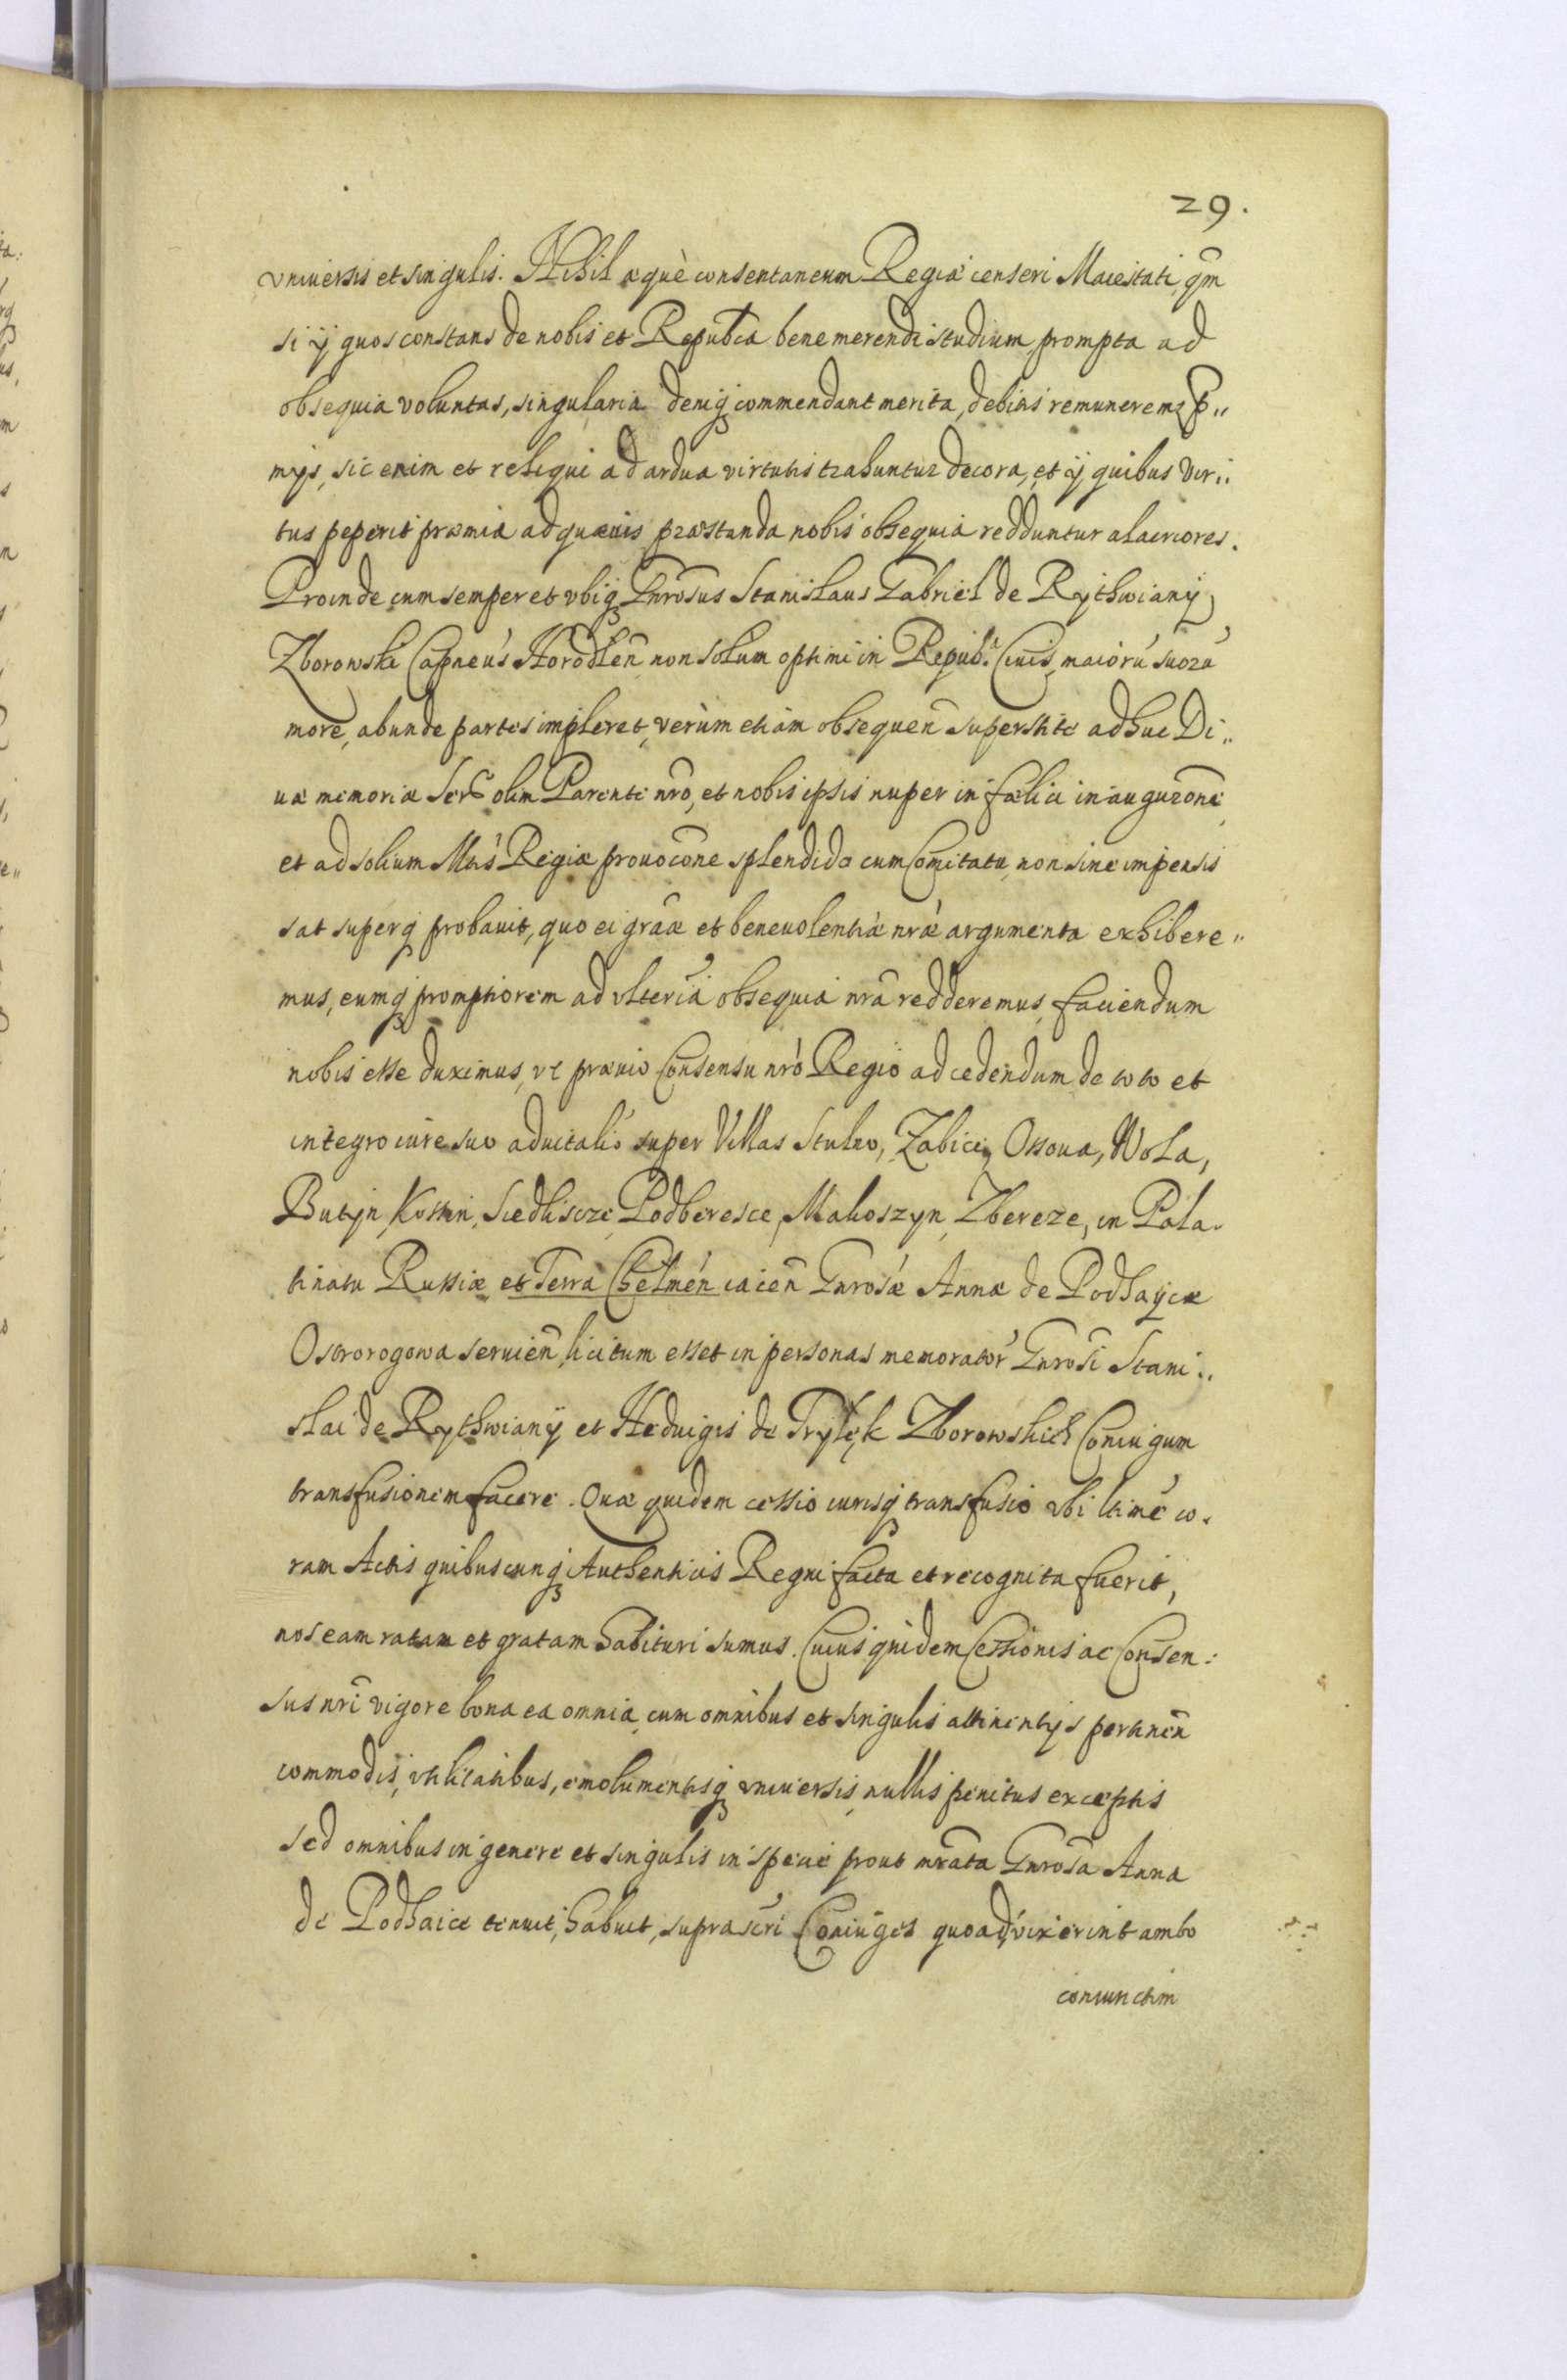 29.
vniuersis et singulis. Nihil aequè consentaneum Regiae censeri Maiestati, qm̃
si ij quos constans de nobis et Repub̃ca bene merendi studium, prompta ad
obsequia voluntas, singularia deniq commendant merita, debitis remuneremꝫ p̃„
mijs, sic enim et reliqui ad ardua virtutis trahuntur decora, et ij quibus Vir„
tus peperit praemia ad quaeuis praestanda nobis obsequia redduntur alacriores.
Proinde cum semper et vbiq Gnrosus Stanislaus Gabriel de Rythwianÿ
Zborowski Capneus Horodlen̄ non solum optimi in Repub: Ciuis, maiorū suorū
more, abunde partes impleret, verùm etiam obsequen̄ superstite adhuc Di„
uae memoriae Ser olim Parente nrõ, et nobis ipsis nuper in faelici inaugurõne
et ad solium Mtis Regiae prouocõne splendido cum Comitatu, non sine impensis
sat superq probauit, quo ei grãae et beneuolentiae nrae argumenta exhibere„
mus, eumq promptiorem ad vlteriã obsequia nrã redderemus, faciendum
nobis esse duximus, vt praeuio Consensu nrõ Regio ad cedendum de toto et
integro iure suo aduitali super Villas Stulno, Zabice, Ossoua, Wola,
Butyn, Kossin, Siedliscze, Podberesce, Makoszyn, Zbereze, in Pala„
tinatu Russiae et Terra Chelmen̄ iacen̄ Gnrosae Annae de Podhaÿce
Ostrorogowa seruien̄, licitum esset in personas memorator Gnrosi Stani„
slai de Rythwianÿ et Heduigis de Trylęk Zborowskich Coniugum
transfusionem facere. Quae quidem cessio iurisq transfusio vbi ltimè co„
ram Actis quibuscunq Authenticis Regni facta et recognita fuerit,
nos eam ratam et gratam habituri sumus. Cuius quidem Cessionis ac Consen:
sus nrĩ vigore bona ea omnia, cum omnibus et singulis attinentijs pertinen̄
commodis, vtilitatibus, emolumentisq vniuersis, nullis penitus exceptis
sed omnibus in genere et singulis in specie prout mrãta Gnrosa Anna
de Podhaice tenuit, habuit, suprascri Coniuges quoad vixerint ambo
coniunctim